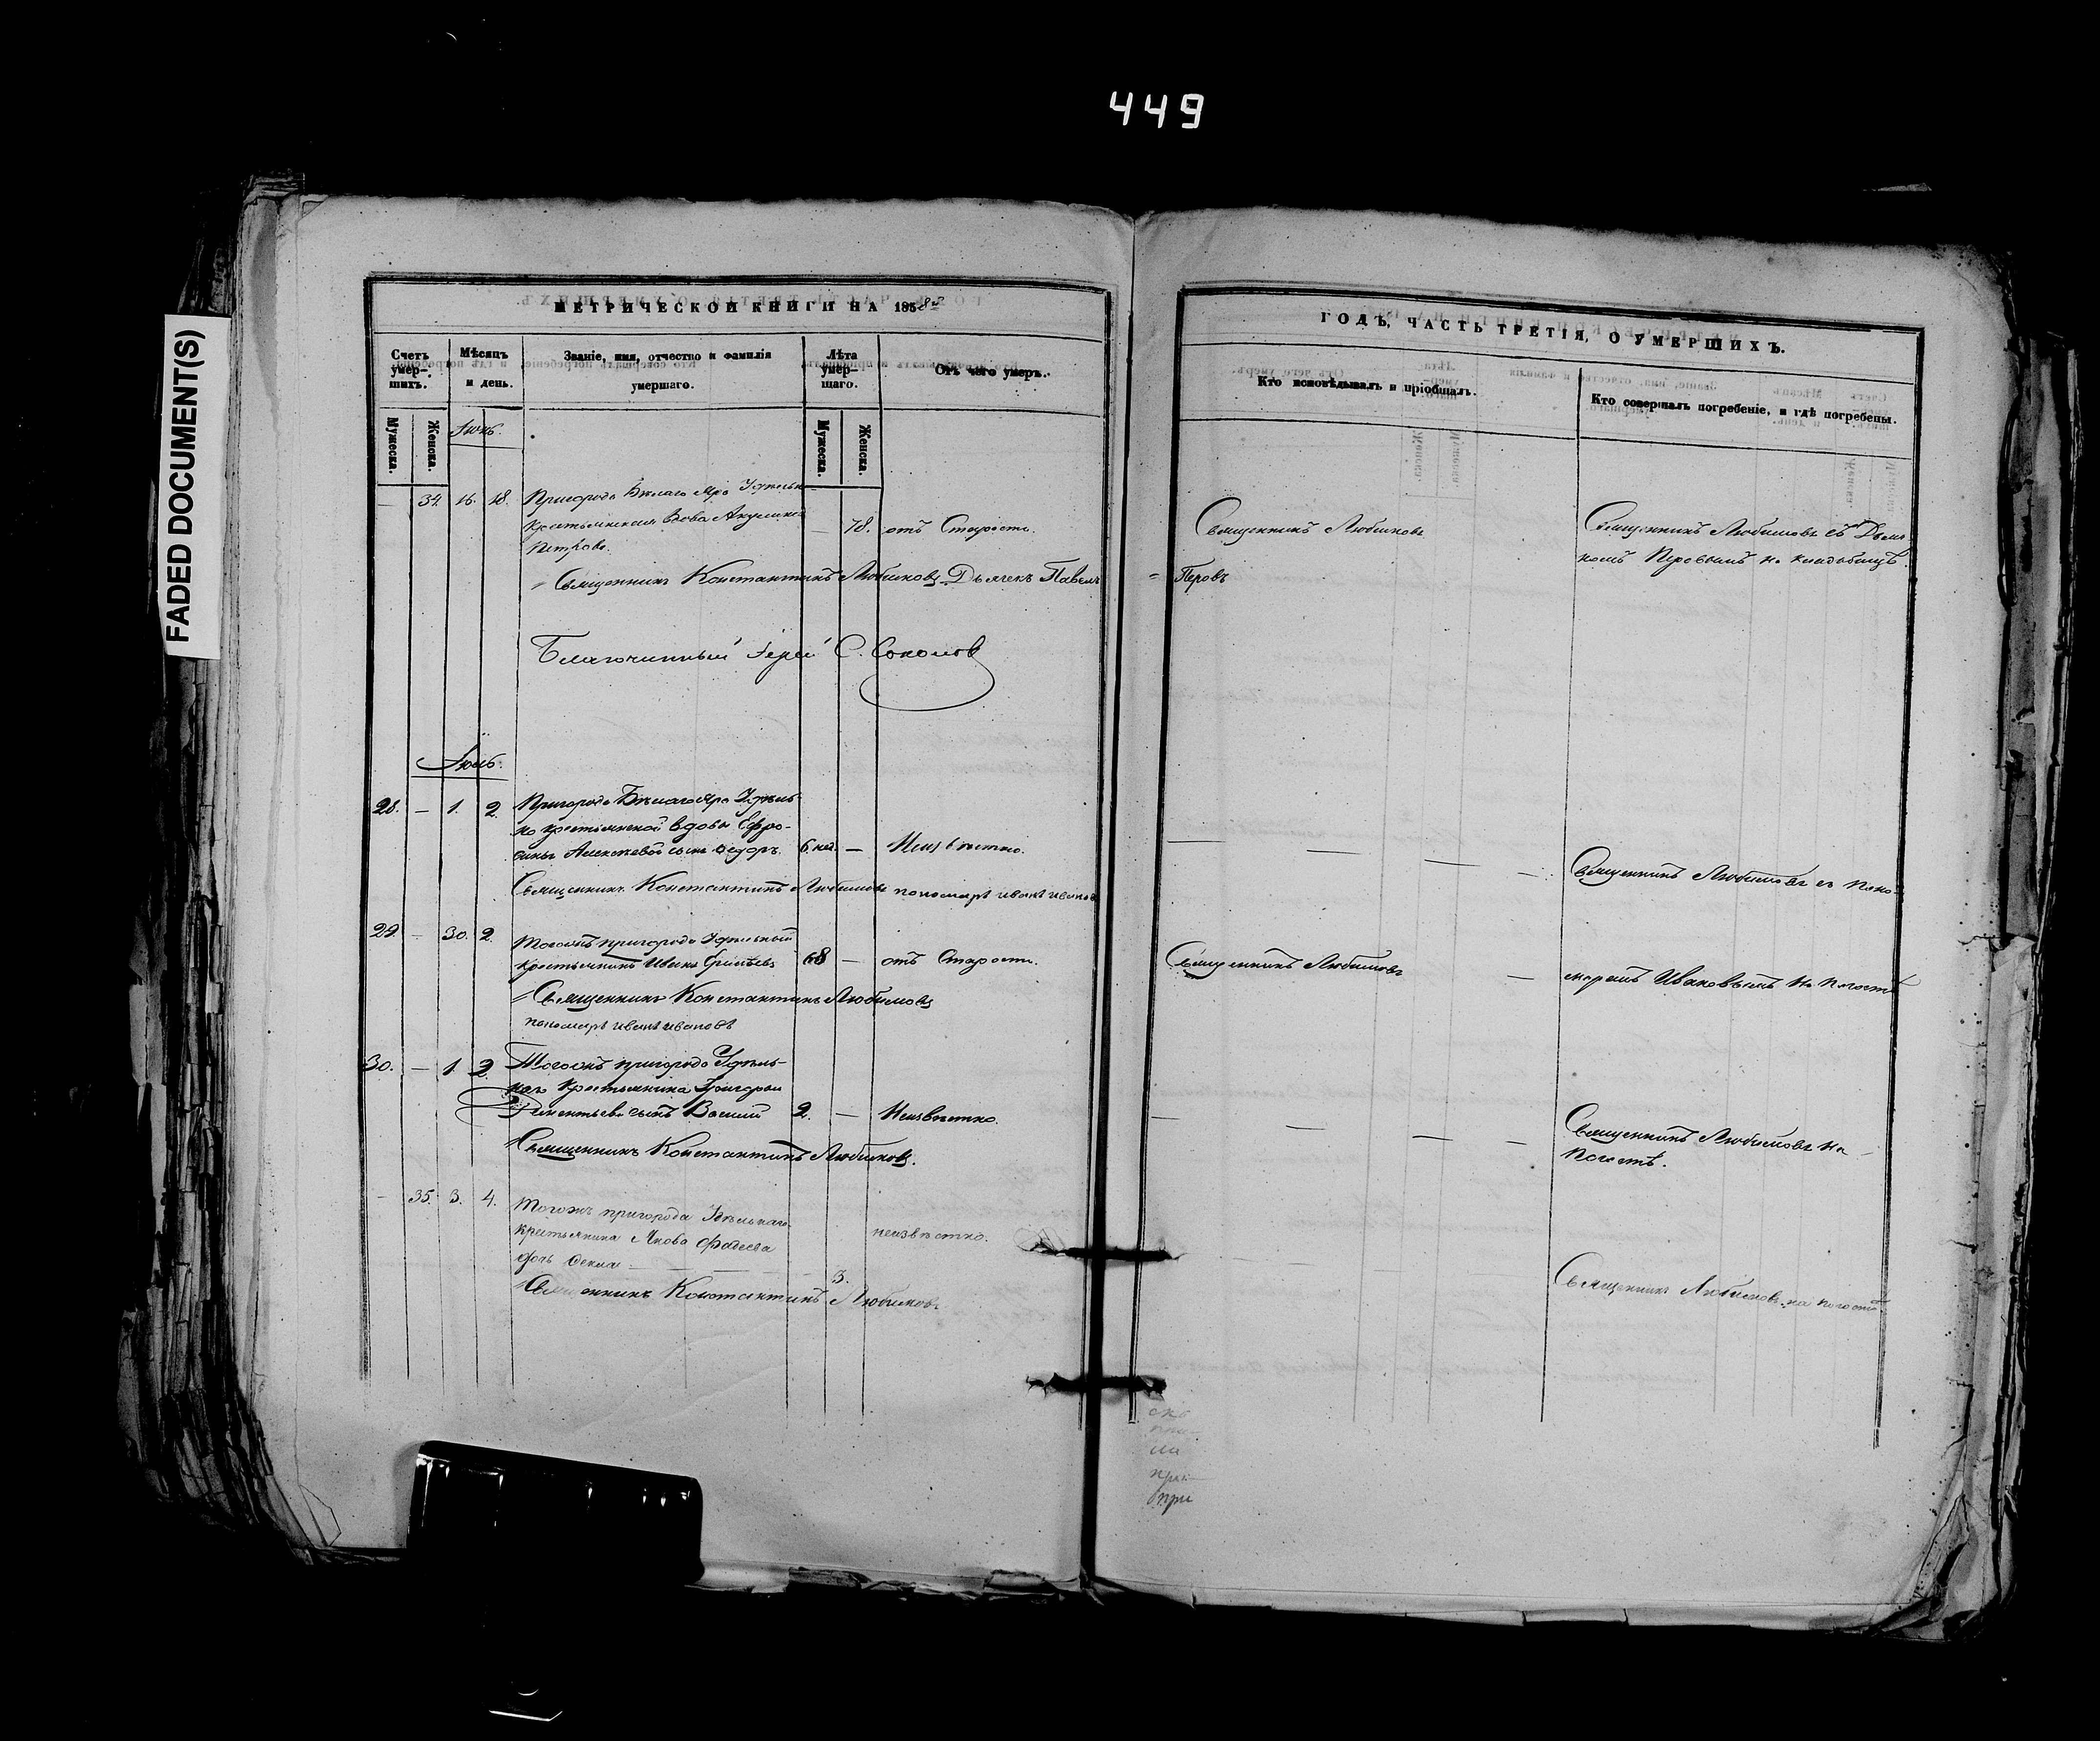 449
FADED DOCUMENT(S)
МЕТРИЧЕСКОЙ КНИГИ НА 1858й
ГОДЪ, ЧАСТЬ ТРЕТІЯ, О УМЕРШИХЪ.
Счетъ умер-шихъ.
Мѣсяцъ и день.
Званіе, имя, отчество и фамилія умершаго.
Лѣта умер-шаго.
Отъ чего умеръ.
Кто исповѣдывалъ и пріобщалъ.
Кто совершалъ погребеніе, и гдѣ погребены.
Мужеска.
Женска.
Мужеска.
Женска.
Іюнь.
— 34. 16. 18. Пригорода Бѣлаго Яра Удѣльн
крестьянская вдова Акулина — 78. отъ Старости. Священникъ Любимовъ Священникъ Любимовъ съ Дьяч-
Петрова. комъ Перовымъ на кладбищѣ.
Священникъ Константинъ Любимовъ Дьячекъ Павелъ = Перовъ
Благочинный Іерей С. Соколов
Іюль.
28. — 1. 2. Пригорода Бѣлаго Яра Удѣль-
но крестьянской вдовы Ефро-
сины Алексѣевой сынъ Ѳедоръ. 6 нед. — Неизвѣстно. — — — — Священникъ Любимовъ съ поно-
Священникъ Константинъ Любимовъ пономарь Иванъ Ивановъ
29. — 30. 2. Тогожъ пригорода Удѣльный
крестьянинъ Иванъ 68 — отъ Старости. Священникъ Любимовъ — маремъ Ивановымъ на погостѣ
Священникъ Константинъ Любимовъ
пономарь Иванъ Ивановъ
30. — 1 2 Тогожъ пригорода Удѣль-
наго Крестьянина Григорія
Дементьева сынъ Василій 2. — Неизвѣстно. — — — — Священникъ Любимовъ на
погостѣ.
Священникъ Константинъ Любимовъ.
— 35. 3. 4. Тогожъ пригорода Удѣльнаго
крестьянина Якова Фадеева неизвѣстно.
дочь Ѳекла 3. Священникъ Любимовъ на погостѣ
Священникъ Константинъ Любимовъ
при